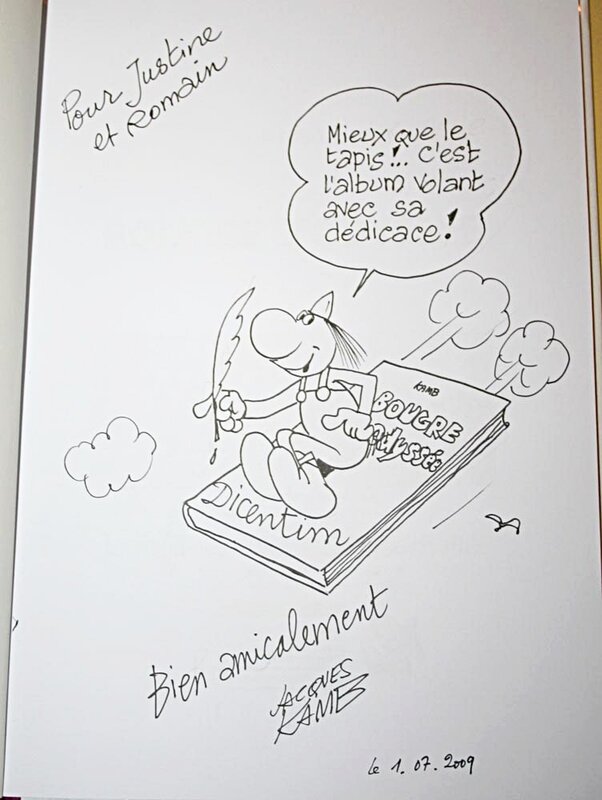 Pour Justine
et Romain
Mieux que le
tapis!... C'est
l'album volant
avec sa
dédicace!
KAMB
BOUGRE
odyssée
Dicentim
Bien amicalement
JACQUES
KAMB
le 1.07.2009